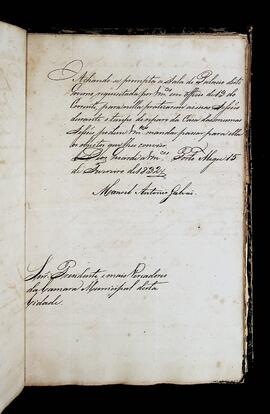 Achando-se prompta a Sala de Palacio deste
Governo, requisitada por Vm.ces em officio de 13 do
Corrente, para nella continuarem as suas Sessões
durante o tempo do reparo da Casa das mesmas
Sessões, podem Vm.ces mandar passar para ella
os objectos que lhes convier.
Deos Guarde a Vm.ces Porto Alegre 15
de Fevereiro de 1832
Manoel Antonio Galvão.
Snr. Presidente, e mais Vereadores
da Camara Municipal desta
Cidade.